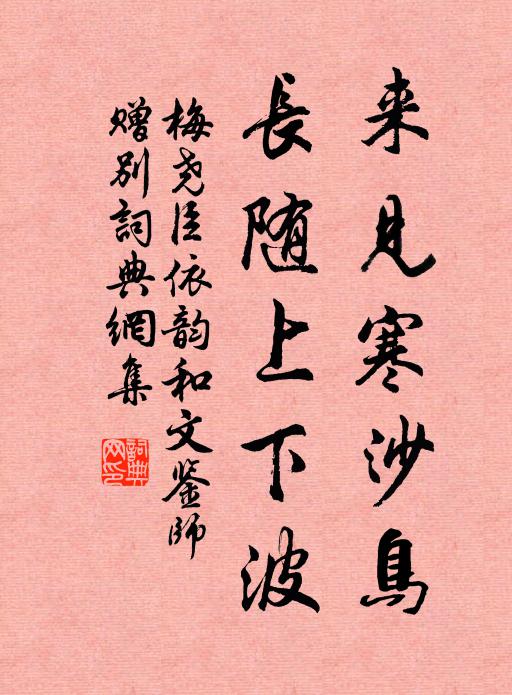 来见寒沙鳥
長随上下波
梅尧臣依韵和文鉴師
赠别詞典網集
詞典网印